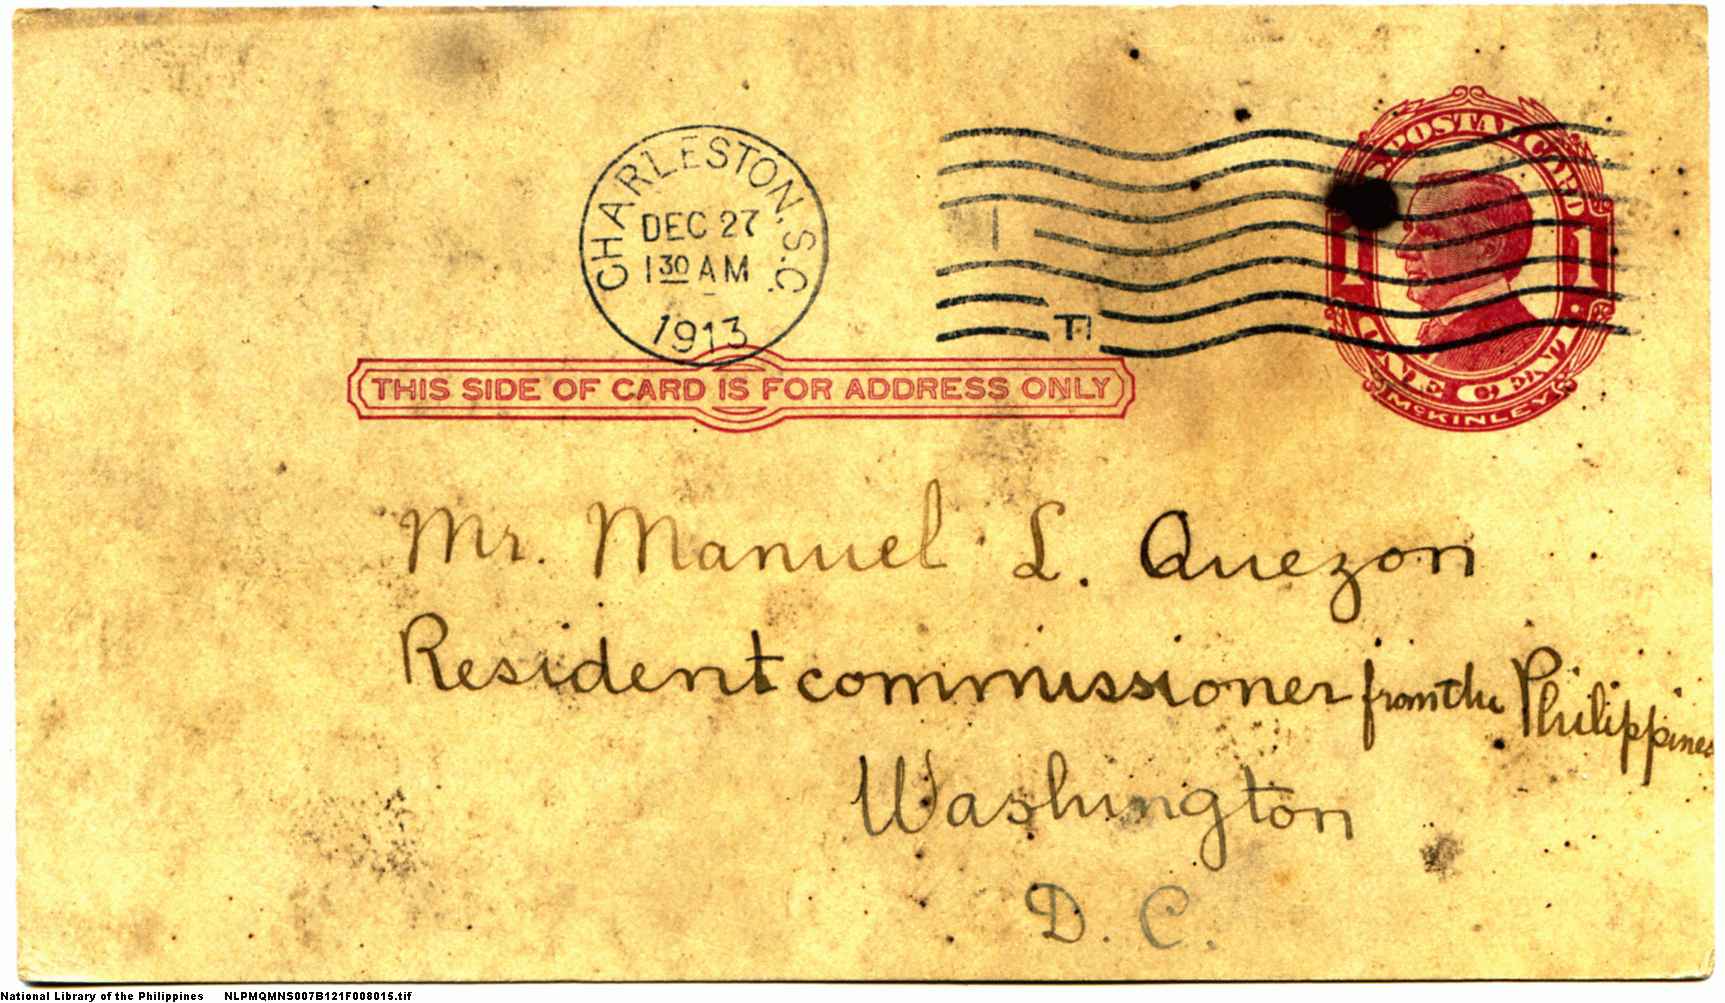 CHARLESTON, S.C.
DEC 27
1 30 AM
1913
U.S. POSTAL CARD
1 1
ONE CENT
McKINLEY
THIS SIDE OF CARD IS FOR ADDRESS ONLY
Mr. Manuel L. Quezon
Resident commissioner from the Philippines
Washington
D. C.
National Library of the Philippines NLPMQMNS007B121F008015.tif